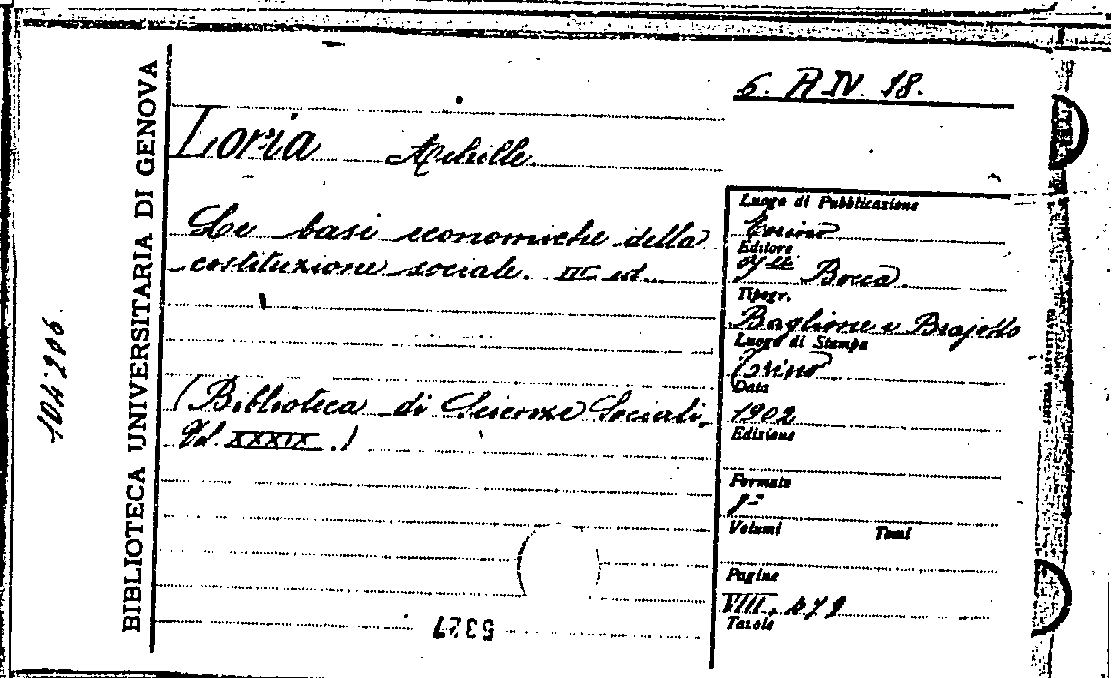 BIBLIOTECA UNIVERSITARIA DI GENOVA
104206
6. A IV. 18.
Loria Achille
Le basi economiche della
costituzione sociale. III ed.
(Biblioteca di Scienze Sociali.
Vol. XXXIX.)
5327
Luogo di Pubblicazione
Torino
Editore
F.lli Bocca
Tipogr.
Baglione e Brajotto
Luogo di Stampa
Torino
Data
1902
Edizione
Formato
8°
Volumi Tomi
Pagine
VIII, 479
Tavole